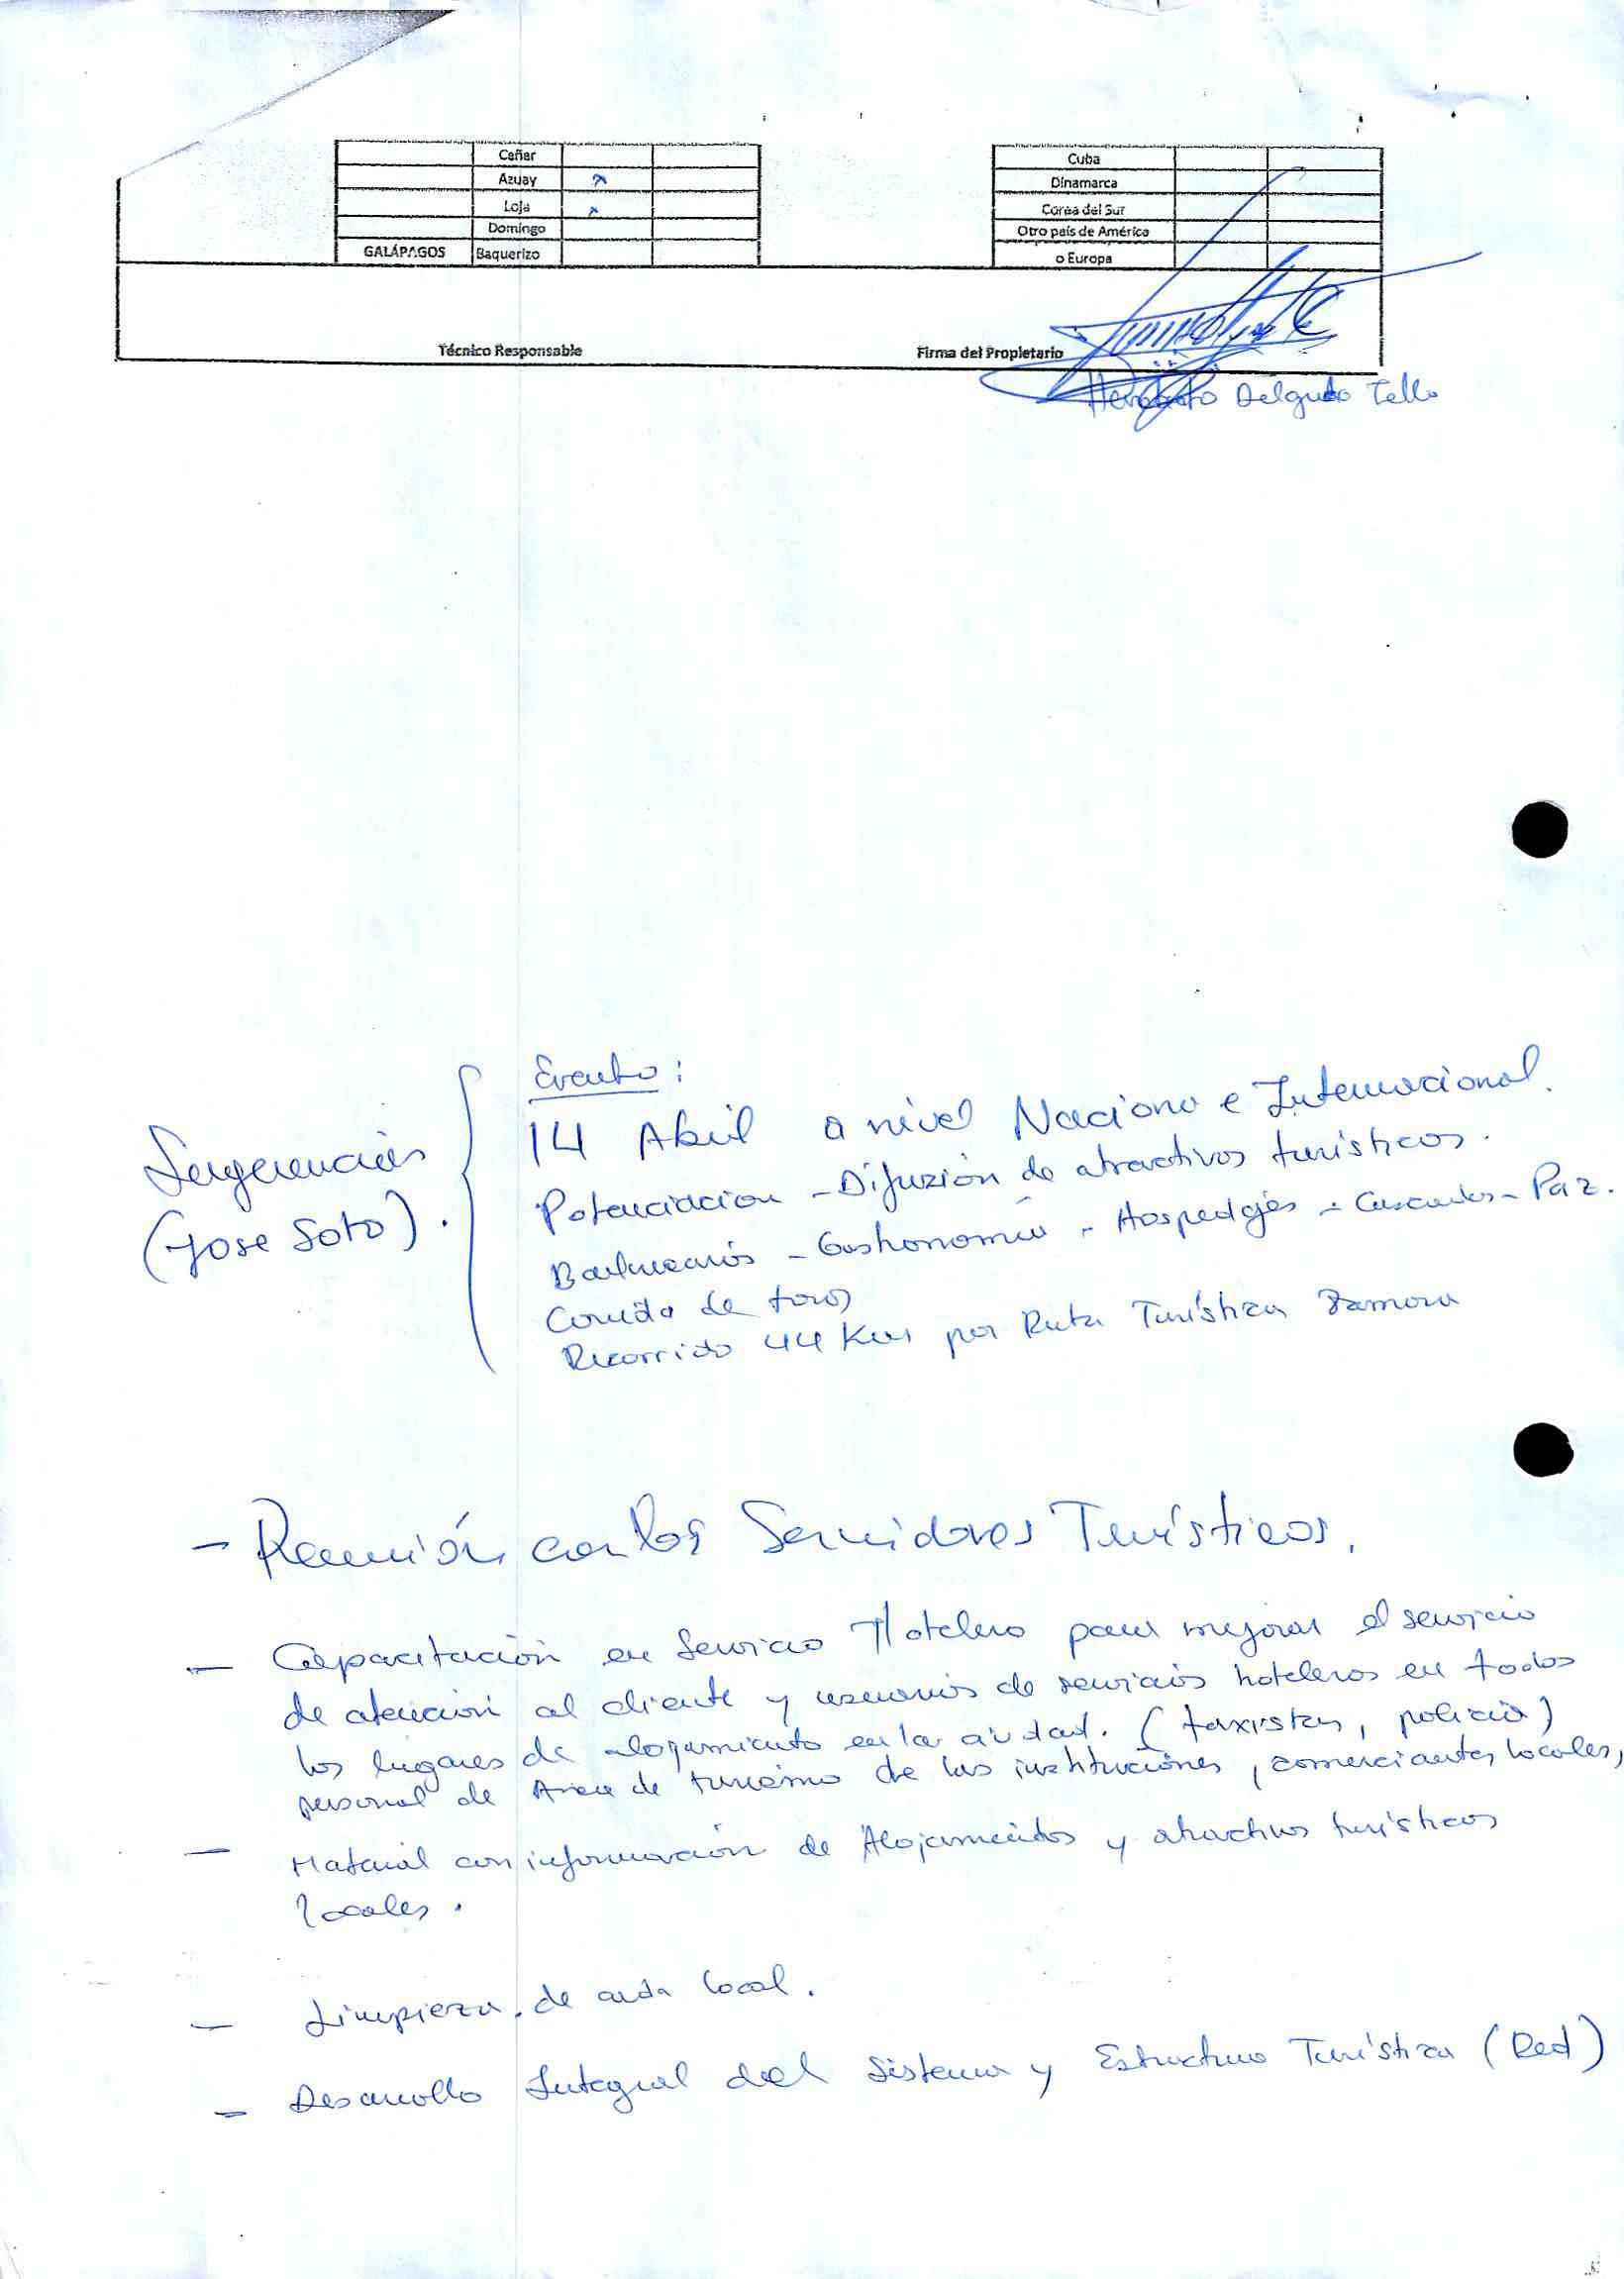 Cañar
Azuay x
Loja x
Domingo
GALÁPAGOS Baquerizo
Cuba
Dinamarca
Corea del Sur
Otro país de América
o Europa
Técnico Responsable
Firma del Propietario
Delgado Tello
Sugerencias
(Jose Soto).
Evento:
14 Abril a nivel Naciona e Internacional.
Potenciacion - Difuzión de atractivos turísticos.
Balnearios - Gastronomía - Hospedajes - Cascadas - Paz.
Corrida de toros
Recorrido 44 Km por Ruta Turística Zamora
- Reunión con los Servidores Turísticos.
- Capacitación en Servicio Hotelero para mejorar el servicio
de atención al cliente y usuarios de servicios hoteleros en todos
los lugares de alojamiento en la ciudad. (taxistas, policía)
personal de Area de turismo de las instituciones, comerciantes locales,
- Material con información de Alojamientos y atractivos turísticos
locales.
- Limpieza de cada local.
- Desarrollo Integral del Sistema y Estructura Turística (Red)